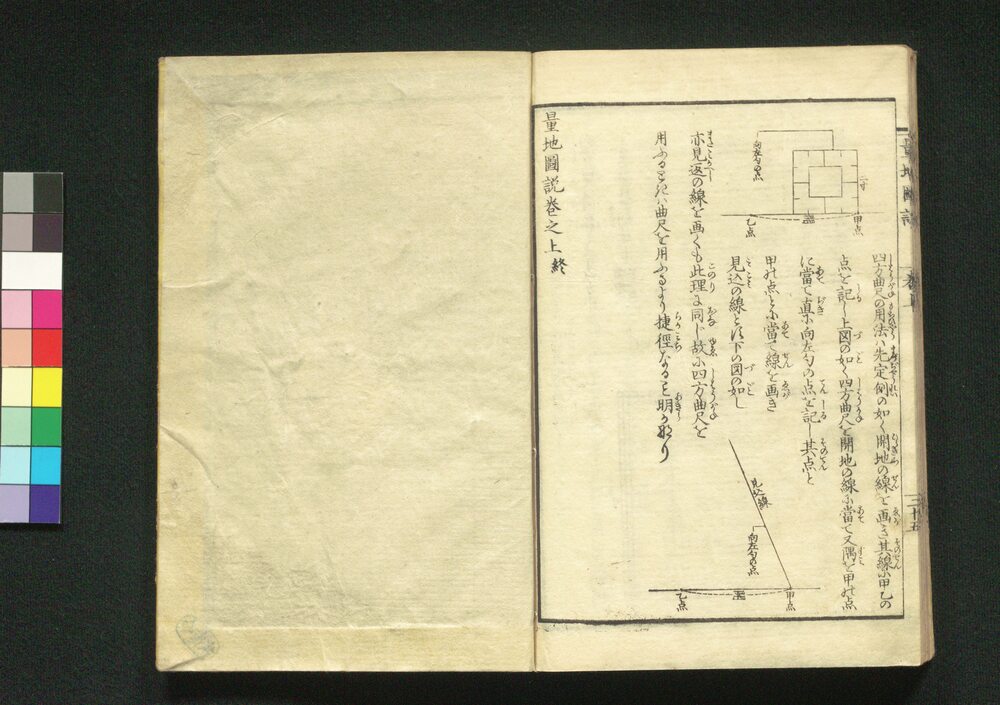 四方曲尺の用法ハ先定例の如く開地の線を画き其線に甲乙の
点を記し上図の如く四方曲尺を開地の線に當て又隅を甲の点
に當て直に向左勾の点を記し其点と
甲の点とに當て線を画き
見込の線とす下の図の如し
亦見返の線を画くも此理に同じ故に四方曲尺を
用ふるときハ曲尺を用ふるより捷徑なること明かなり
量地圖説巻之上終
向左勾の点
二寸
甲点
乙点
見込線
向左勾の点
甲点
乙点
量地圖説
巻上
三十五